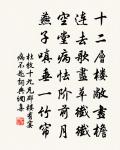 十二層樓敞畫檐
連雲歌盡草纖纖
空堂病怯階前月
燕子嗔垂一竹簾
杜牧十九兄郡樓有宴
病不赴詞典網集